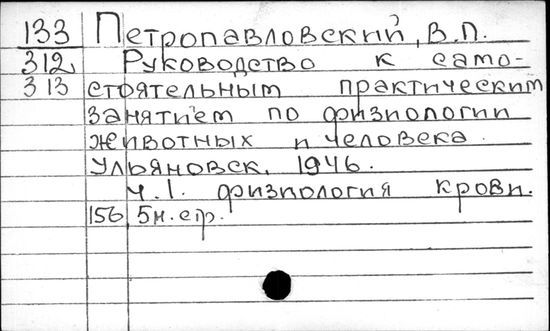 133 Петропавловский, В.П.
312 Руководство к само-
313 стоятельным практическим
занятием по физиологии
животных и человека.
Ульяновск, 1946.
ч.1. физиология крови.
156 5н.стр.